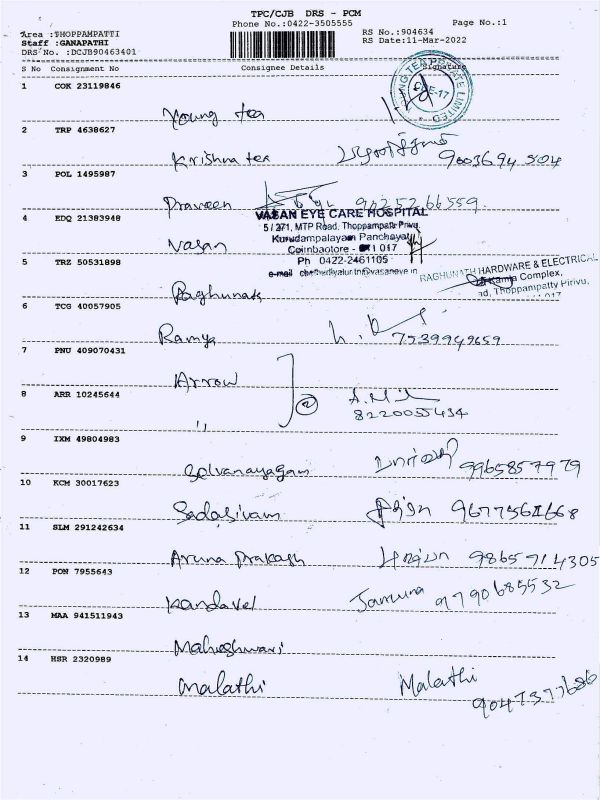 TPC/CJB DRS - PCM
Phone No.:0422-3505555
Page No.:1
Area :THOPPAMPATTI
Staff :GANAPATHI
DRS No. :DCJB90463401
RS No.:904634
RS Date:11-Mar-2022
S No Consignment No Consignee Details Signature
1 COK 23119846
Young tea
2 TRP 4638627
Krishna tea 9003694504
3 POL 1495987
Praveen 90252 66559
4 EDQ 21383948
Vasan
VASAN EYE CARE HOSPITAL
5 / 271, MTP Road, Thoppampatti Pirivu,
Kurudampalayam Panchayat
Coimbatore - 017
Ph 0422-2461105
e-mail
5 TRZ 50531898
Raghunath
RAGHUNATH HARDWARE & ELECTRICAL
Complex,
Thoppampatty Pirivu,
6 TCG 40057905
Ramya 7539949659
7 PNU 409070431
Arrow
8 ARR 10245644
" 2
8220055434
9 IXM 49804983
Selvanayagam 9965857979
10 KCM 30017623
Sadasivam
11 SLM 291242634
Aruna Prakash 9865714305
12 PON 7955643
Kandavel Jamuna 9790685532
13 MAA 941511943
Maheshwari
14 HSR 2320989
Malathi Malathi